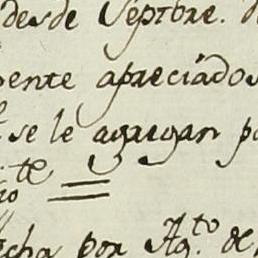 desde Septbre. d
ente apreciados
se le agregan p
te
echa por Ag.to de